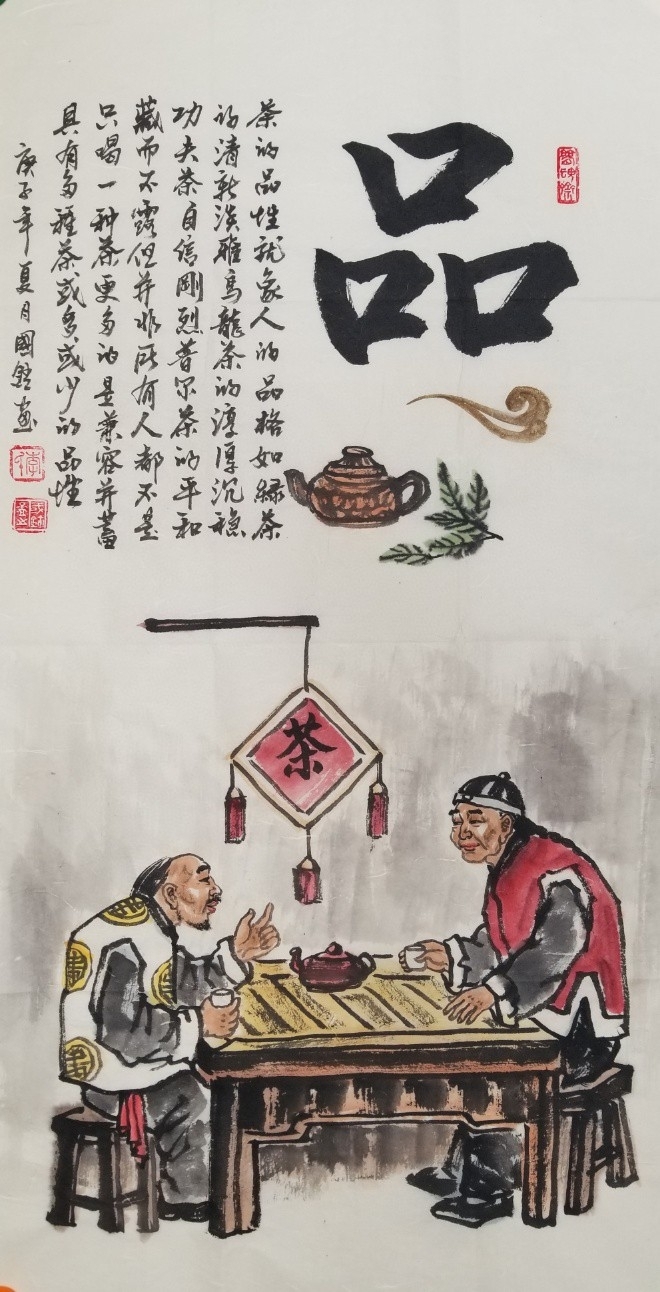 品
茶的品性就象人的品格如绿茶
的清新淡雅烏龍茶的淳厚沉稳
功夫茶自信剛烈普尔茶的平和
藏而不露但并非所有人都不是
只喝一种茶更多的是兼容并蓄
具有多種茶或多或少的品性
庚子年夏月國画
茶